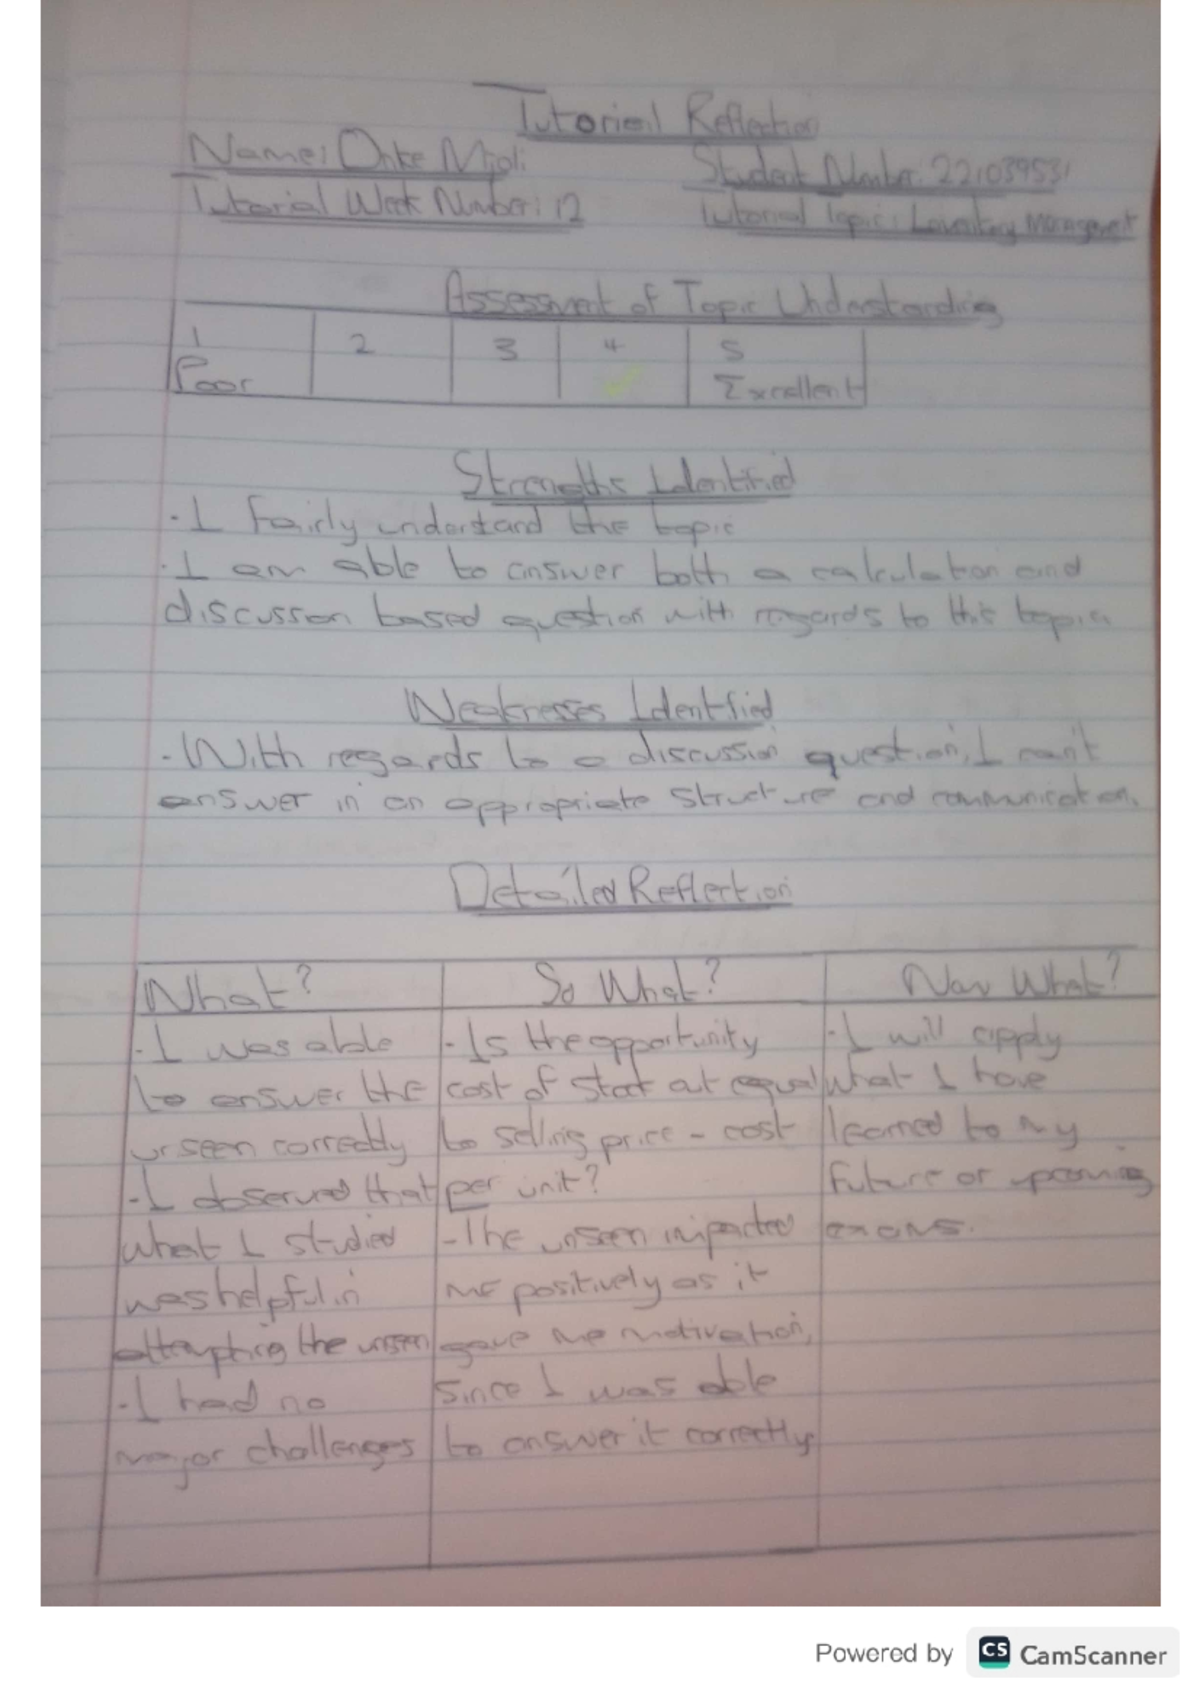 Tutorial Reflection
Name: Onke Mjoli Student Number: 221039531
Tutorial Week Number: 12 Tutorial Topic: Inventory Management
Assessment of Topic Understanding
1 2 3 4 5
Poor Excellent
Strengths Identified
- I fairly understand the topic
- I am able to answer both a calculation and
discussion based question with regards to this topic.
Weaknesses Identified
- With regards to a discussion question, I can't
answer in an appropriate structure and communication.
Detailed Reflection
What? So What? Now What?
- I was able
to answer the
unseen correctly
- I observed that
what I studied
was helpful in
attempting the unseen
- I had no
major challenges
- Is the opportunity
cost of stock out equal
to selling price - cost
per unit?
- The unseen impacted
me positively as it
gave me motivation,
since I was able
to answer it correctly
- I will apply
what I have
learned to my
future or upcoming
exams.
Powered by CS CamScanner